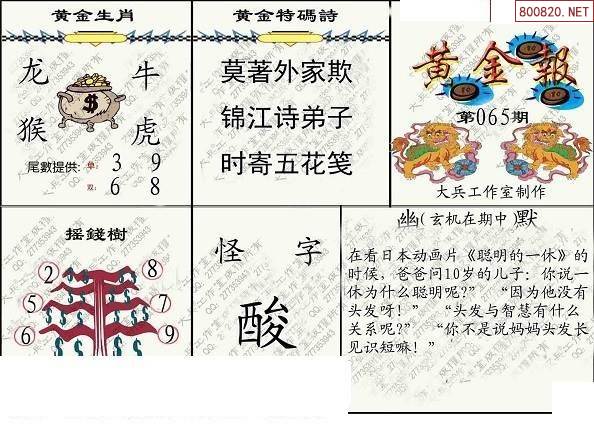 800820.NET
黄金生肖
龙 牛
猴 虎
尾數提供: 单: 3 9
双: 6 8
黄金特碼詩
莫著外家欺
锦江诗弟子
时寄五花笺
黄金報
第065期
大兵工作室制作
摇錢樹
2 8
5 7
6 9
怪 字
酸
幽(玄机在期中)默
在看日本动画片《聪明的一休》的
时候，爸爸问10岁的儿子：你说一
休为什么聪明呢?” “因为他没有
头发呀！” “头发与智慧有什么
关系呢?” “你不是说妈妈头发长
见识短嘛！”